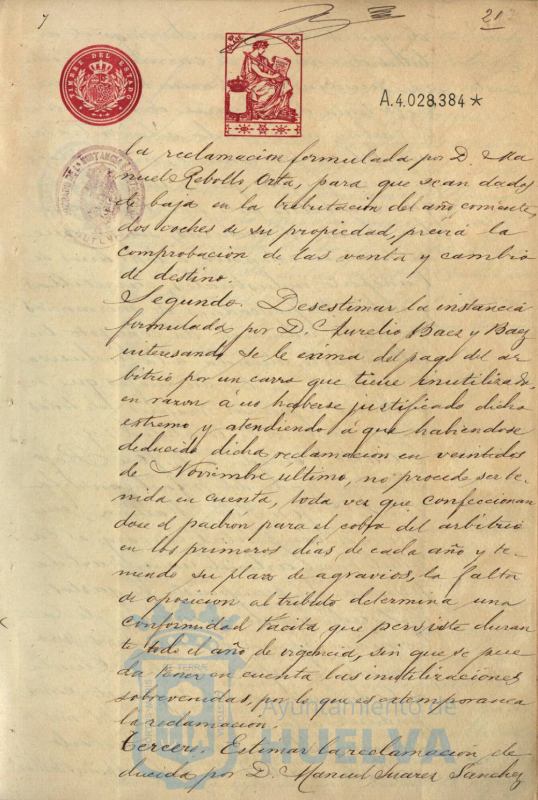 7
21
TIMBRE DEL ESTADO
A.4.028,384*
la reclamacion formulada por D. Ma
nuel Rebollo Orta, para que sean dados
de baja en la tributacion del año corriente,
dos coches de su propiedad, previa la
comprobacion de las venta y cambio
de destino.
Segundo. Desestimar la instancia
formulada por D. Aurelio Baez y Baez
interesando se le exima del pago del ar
bitrio por un carro que tiene inutilizado,
en razon á no haberse justificado dicho
extremo y atendiendo á que habiendose
deducido dicha reclamacion en veintidos
de Noviembre último, no procede ser te
nida en cuenta, toda vez que confeccionan
dose el padrón para el cobro del arbitrio
en los primeros dias de cada año y te
niendo su plazo de agravios, la falta
de oposicion al tributo determina una
conformidad tácita que persiste duran
te todo el año de vigencia, sin que se pue
da tener en cuenta las inutilizaciones
sobrevenidas, por lo que es extemporanea
la reclamación.
Tercero. Estimar la reclamacion de
ducida por D. Manuel Suarez Sanchez
Ayuntamiento de
HUELVA